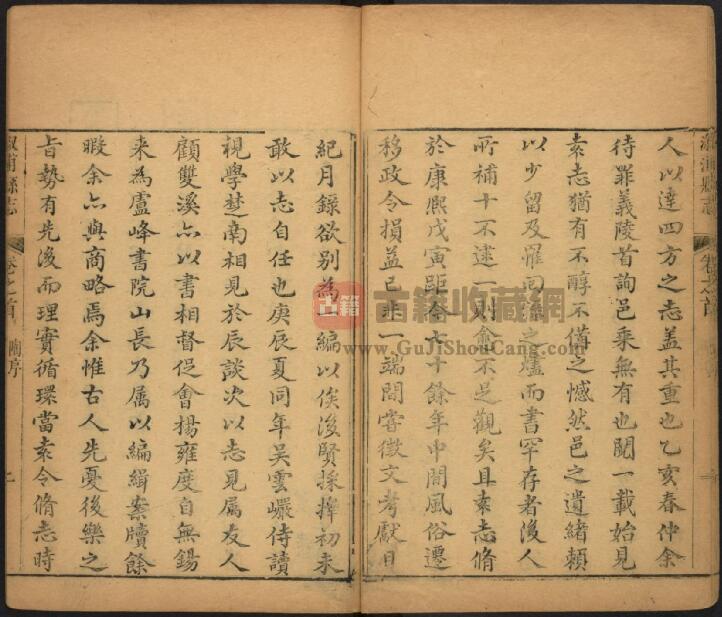 人以達四方之志蓋其重也乙亥春仲余
待罪義陵首詢邑乗無有也閱一載始見
袁志猶有不醇不備之憾然邑之遺緒頼
以少留及罹回祿之燼而書罕存者後人
所補十不逮一則愈不足觀矣且袁志脩
於康熙戊寅距今六十餘年中間風俗遷
移政令損益已非一端間嘗徴文考獻日
紀月錄欲別為一編以俟後賢採擇初未
敢以志自任也庚辰夏同年吴雲巖侍讀
視學楚南相見於辰談次以志見属友人
顧雙溪亦以書相督促會楊雍度自無錫
来為盧峰書院山長乃属以編緝案牘餘
暇余亦與商略焉余惟古人先憂後樂之
旨勢有先後而理實循環當袁令脩志時
溆浦縣志
卷之首
溆浦縣志
卷之首
陶序
古籍
古籍收藏网
www.GuJiShouCang.com